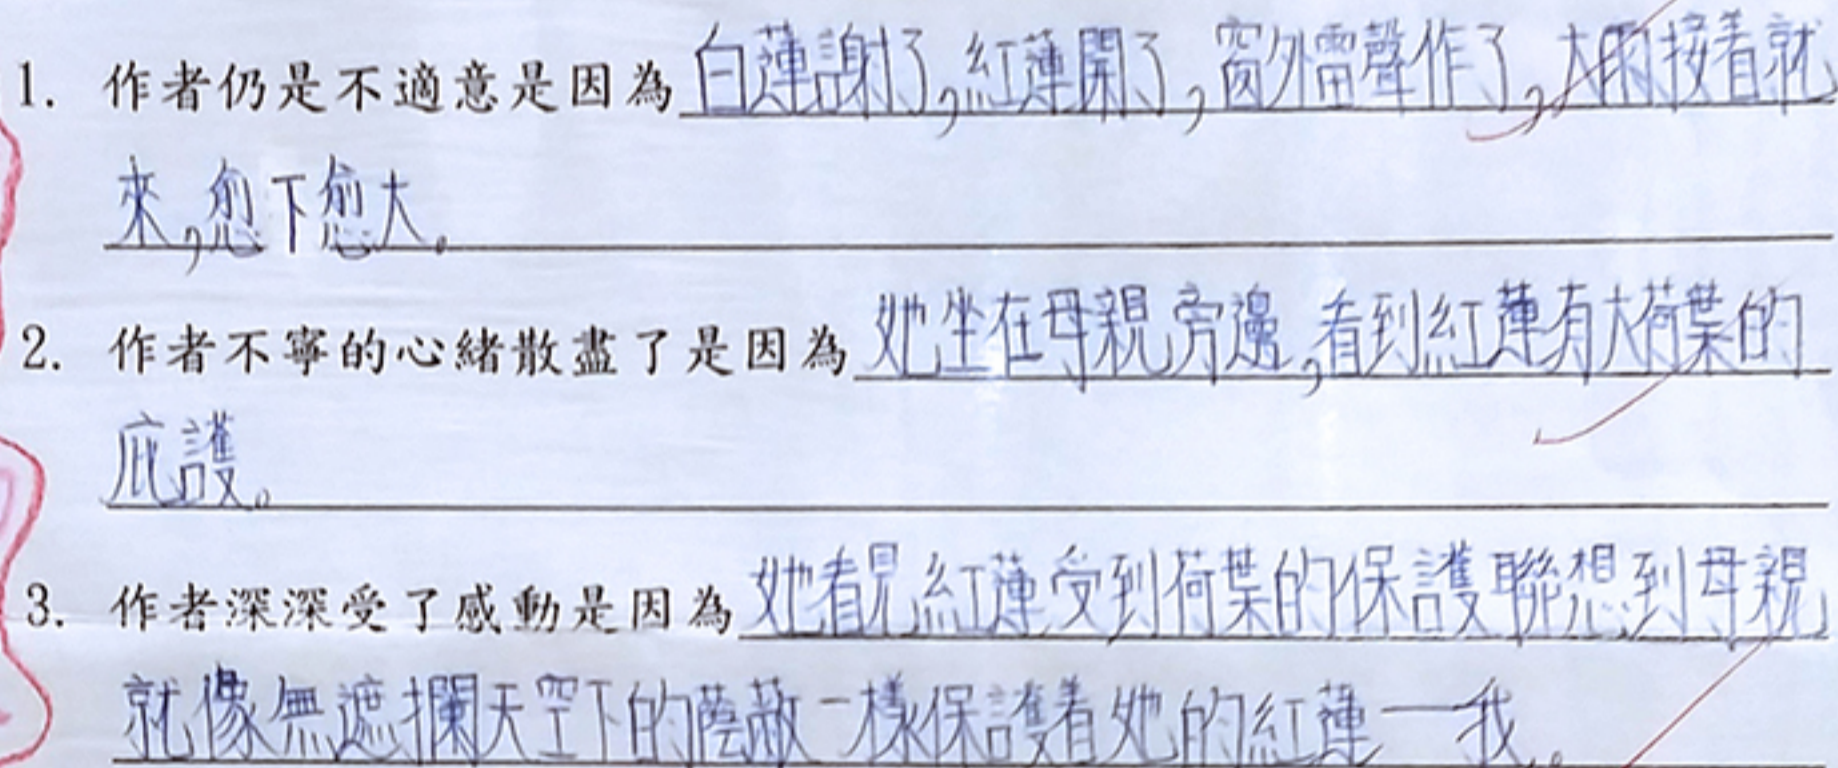 1. 作者仍是不適意是因為白蓮謝了,紅蓮開了,窗外雷聲作了,大雨接着就
來,愈下愈大。
2. 作者不寧的心緒散盡了是因為她坐在母親旁邊,看到紅蓮有大荷葉的
庇護。
3. 作者深深受了感動是因為她看見紅蓮受到荷葉的保護聯想到母親
就像無遮攔天空下的蔭蔽一樣保護着她的紅蓮——我。